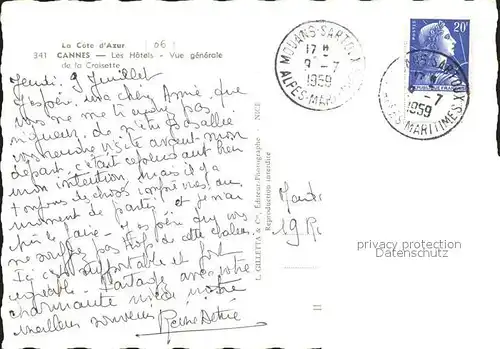 La Côte d'Azur (06)
341 CANNES — Les Hôtels - Vue générale
de la Croisette
Jeudi 9 Juillet
J'espère, ma chère Amie, que
vous ne me tiendrez pas
rigueur, de n'être pas allée
vous rendre visite avant mon
départ, c'était cependant bien
mon intention, mais il y a
toujours des choses imprévues, au
moment de partir, et je n'ai
pu le faire. J'espère que vous
ne souffrez pas trop de cette chaleur.
Ici c'est supportable et fort
agréable. Partagez avec votre
charmante nièce, notre
meilleur souvenir.
L. GILLETTA & Cie, Éditeur-Photographe - NICE
Reproduction interdite
MOUANS-SARTOUX
17 H
9 - 7
1959
ALPES-MARITIMES
20F
MOUANS-SARTOUX
- 7
1959
ALPES-MARITIMES
19 R
privacy protection
Datenschutz